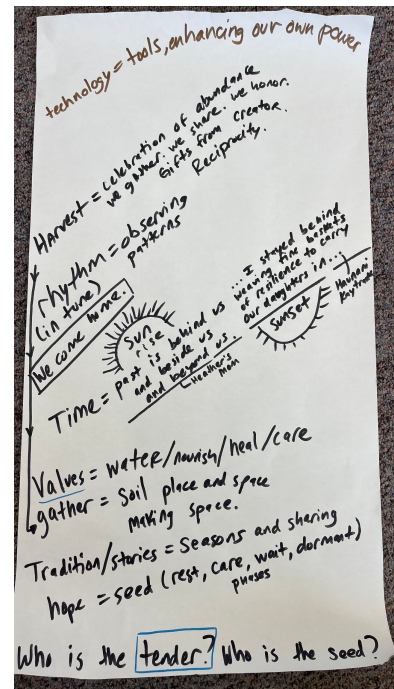 technology = tools, enhancing our own power
Harvest = celebration of abundance
we gather. we share. we honor.
Gifts from creator.
Reciprocity.
rhythm = observing
(in tune) patterns
We come home.
Sun
rise
Time = past is behind us
and beside us
and beyond us.
Heather's
Mom
...I stayed behind
weaving fine baskets
of resilience to carry
our daughters in...
sunset
Haunani
Kay trask
Values = water/nourish/heal/care
gather = soil place and space
making space.
Tradition/stories = seasons and sharing
hope = seed (rest, care, wait, dormant)
phases
Who is the tender? Who is the seed?